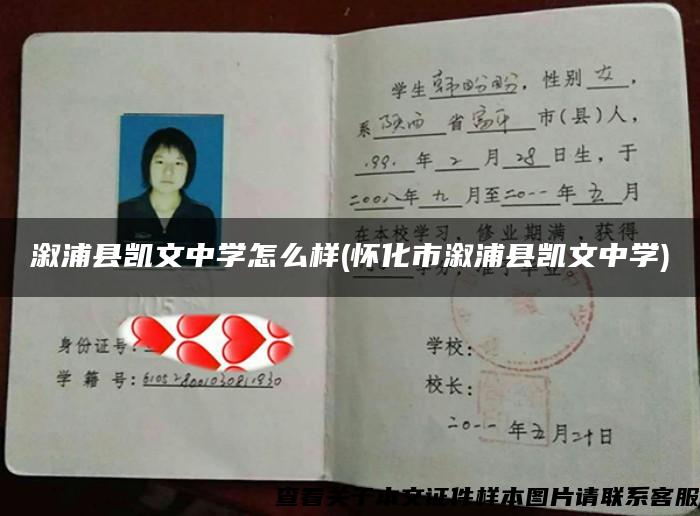 学生韩盼盼，性别女，
系陕西省富平市(县)人，
199.年2月28日生，于
二00八年九月至二0一一年五月
在本校学习，修业期满，获得
溆浦县凯文中学怎么样(怀化市溆浦县凯文中学)
学分，准予毕业。
身份证号：
学籍号：610528001030811930
学校：
校长：
二0一一年五月二十日
查看关于本文证件样本图片请联系客服